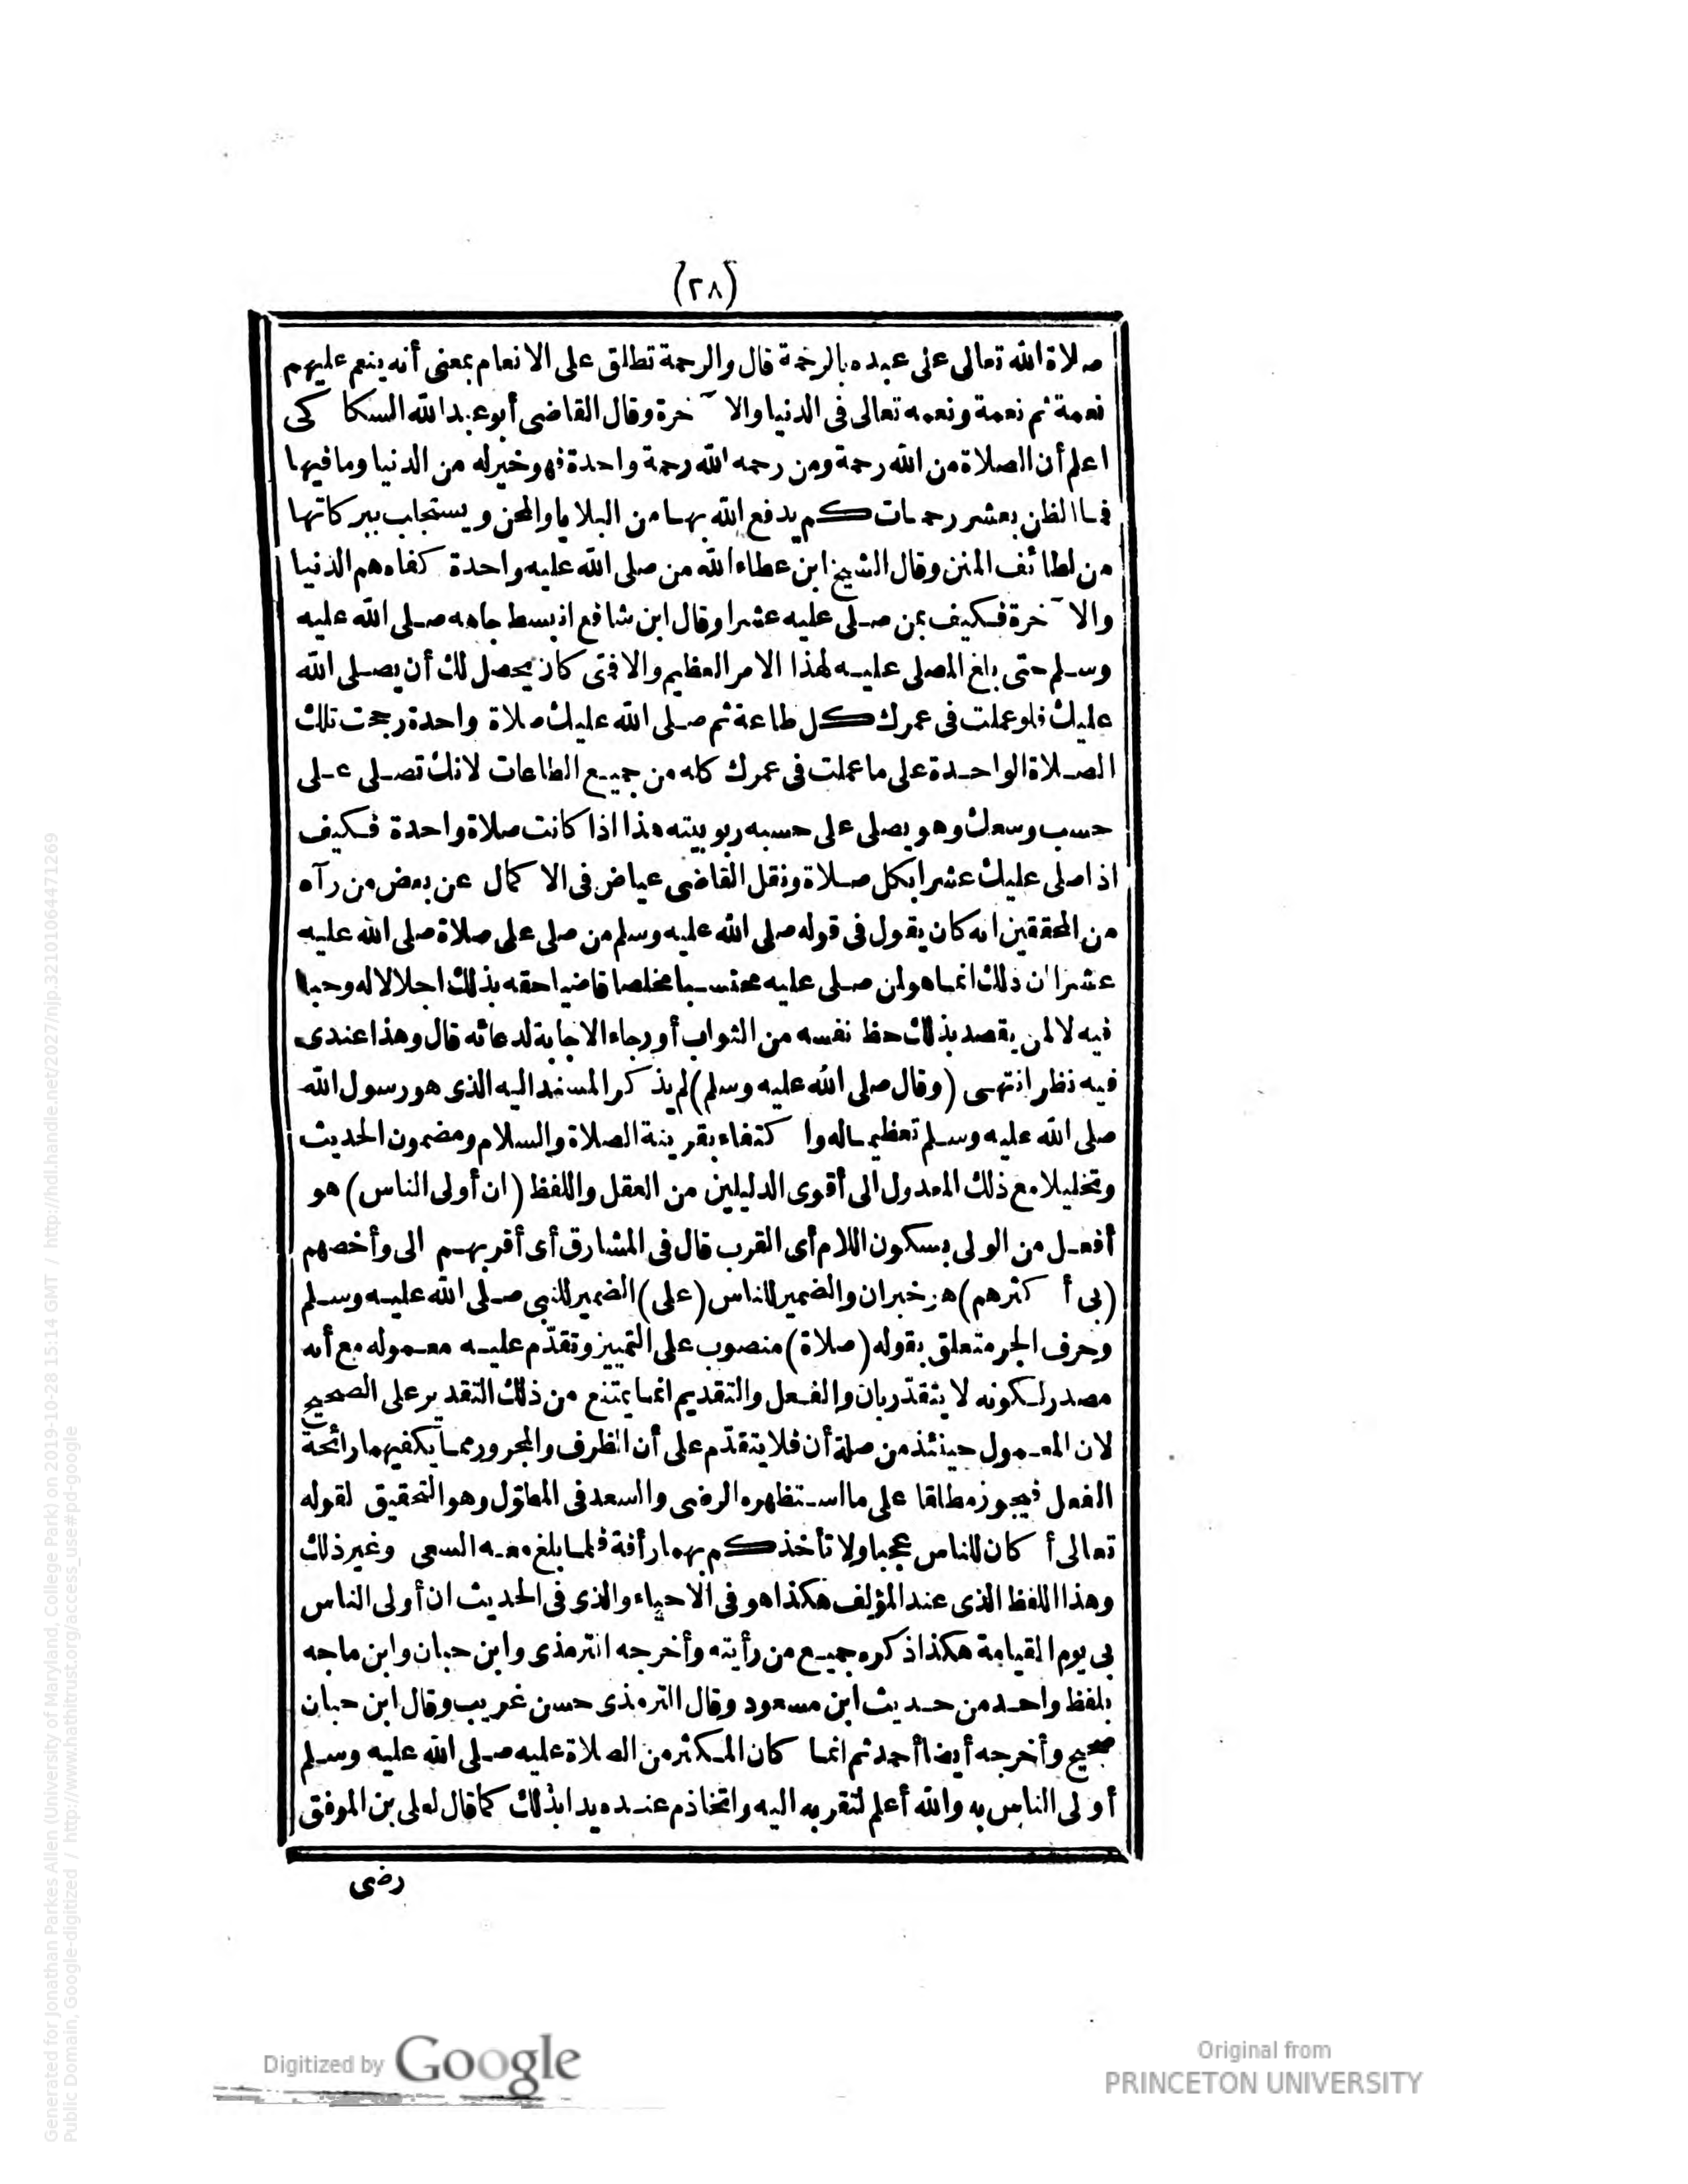 (٢٨)
صلاة الله تعالى على عبده بالرحمة قال والرحمة تطلق على الانعام بمعنى أنه ينعم عليهم
نعمة ثم نعمة ونعمه تعالى فى الدنيا والا خرة وقال القاضى أبو عبد الله السكا كى
اعلم أن الصلاة من الله رحمة ومن رحمه الله رحمة واحدة فهو خير له من الدنيا وما فيها
فما الظن بعشر رحمات كم يدفع الله بها من البلايا والمحن ويستجلب ببركاتها
من لطائف المنن وقال الشيخ ابن عطاء الله من صلى الله عليه واحدة كفاه هم الدنيا
والا خرة فكيف بمن صلى عليه عشرا وقال ابن شافع انبسط جاهه صلى الله عليه
وسلم حتى بلغ المصلى عليه لهذا الامر العظيم والا فتى كان يحصل لك أن يصلى الله
عليك فلو عملت فى عمرك كل طاعة ثم صلى الله عليك صلاة واحدة رجحت تلك
الصلاة الواحدة على ما عملت فى عمرك كله من جميع الطاعات لانك تصلى على
حسب وسعك وهو يصلى على حسب ربوبيته هذا اذا كانت صلاة واحدة فكيف
اذا صلى عليك عشرا بكل صلاة ونقل القاضى عياض فى الا كمال عن بعض من رآه
من المحققين انه كان يقول فى قوله صلى الله عليه وسلم من صلى على صلاة صلى الله عليه
عشرا ان ذلك انما هو لمن صلى عليه محتسبا مخلصا قاضيا حقه بذلك اجلالا له وحبا
فيه لا لمن يقصد بذلك حظ نفسه من الثواب أو رجاء الاجابة لدعائه قال وهذا عندى
فيه نظر انتهى (وقال صلى الله عليه وسلم) لم يذ كر المسند اليه الذى هو رسول الله
صلى الله عليه وسلم تعظيما له وا كتفاء بقرينة الصلاة والسلام ومضمون الحديث
وتخليلا مع ذلك العدول الى أقوى الدليلين من العقل واللفظ (ان أولى الناس) هو
أفعل من الولى بسكون اللام أى القرب قال فى المشارق أى أقربهم الى وأخصهم
(بى أ كثرهم) هو خبران والضمير للناس (على) الضمير للنبى صلى الله عليه وسلم
وحرف الجر متعلق بقوله (صلاة) منصوب على التمييز وتقدّم عليه معموله مع أنه
مصدر لكونه لا يتقدّر بان والفعل والتقديم انما يمتنع من ذلك التقدير على الصحيح
لان المعمول حينئذ من صلة أن فلا يتقدّم على أن الظرف والمجرور مما يكفيهما رائحة
الفعل فيجوز مطلقا على ما استظهره الرضى والسعد فى المطوّل وهو التحقيق لقوله
تعالى أ كان للناس عجبا ولا تأخذكم بهما رأفة فلما بلغ معه السعى وغير ذلك
وهذا اللفظ الذى عند المؤلف هكذا هو فى الاحياء والذى فى الحديث ان أولى الناس
بى يوم القيامة هكذا ذكره جميع من رأيته وأخرجه الترمذى وابن حبان وابن ماجه
بلفظ واحد من حديث ابن مسعود وقال الترمذى حسن غريب وقال ابن حبان
صحيح وأخرجه أيضا أحمد ثم انما كان المكثر من الصلاة عليه صلى الله عليه وسلم
أولى الناس به والله أعلم لتقربه اليه واتخاذه عنده يدا بذلك كما قال لعلى بن الموفق
رضى
Digitized by Google
Original from
PRINCETON UNIVERSITY
Generated for Jonathan Parkes Allen (University of Maryland, College Park) on 2019-10-28 15:14 GMT / http://hdl.handle.net/2027/njp.32101064471269
Public Domain, Google-digitized / http://www.hathitrust.org/access_use#pd-google